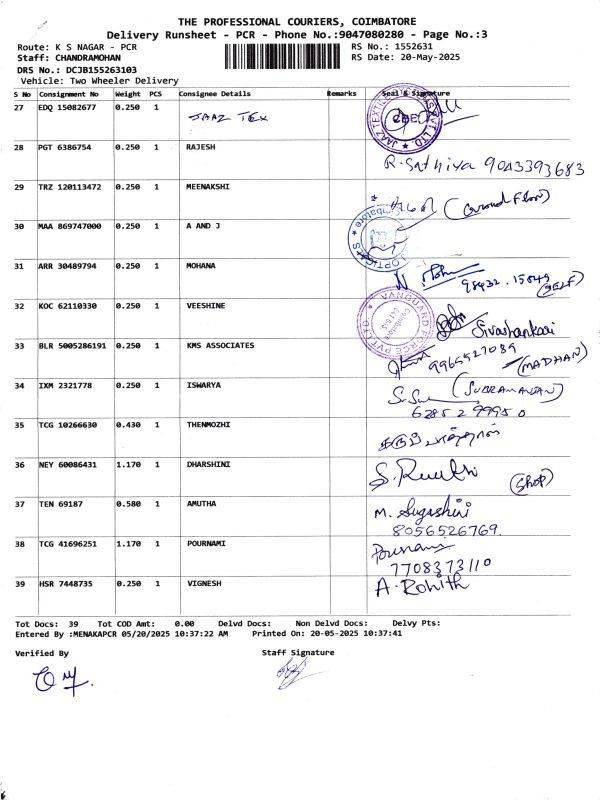 THE PROFESSIONAL COURIERS, COIMBATORE
Delivery Runsheet - PCR - Phone No.:9047080280 - Page No.:3
Route: K S NAGAR - PCR RS No.: 1552631
Staff: CHANDRAMOHAN RS Date: 20-May-2025
DRS No.: DCJB155263103
Vehicle: Two Wheeler Delivery
S No Consignment No Weight PCS Consignee Details Remarks Seal & Signature
27 EDQ 15082677 0.250 1 JAAZ TEX
28 PGT 6386754 0.250 1 RAJESH R. Sathiya 9043393683
29 TRZ 120113472 0.250 1 MEENAKSHI (Ground Floor)
30 MAA 869747000 0.250 1 A AND J OPTICS Coimbatore
31 ARR 30489794 0.250 1 MOHANA 98432.15849 (SELF)
32 KOC 62110330 0.250 1 VEESHINE VANGUARD FORCE PVT LTD. Coimbatore Sivashankari
33 BLR 5005286191 0.250 1 KMS ASSOCIATES 9965527089 (MADHAN)
34 IXM 2321778 0.250 1 ISWARYA (SUBRAMANIAN)
6285299950
35 TCG 10266630 0.430 1 THENMOZHI
36 NEY 60086431 1.170 1 DHARSHINI (Shop)
37 TEN 69187 0.580 1 AMUTHA M. Sugashini
8056526769.
38 TCG 41696251 1.170 1 POURNAMI Pournami
7708373110
39 HSR 7448735 0.250 1 VIGNESH A. Rohith
Tot Docs: 39 Tot COD Amt: 0.00 Delvd Docs: Non Delvd Docs: Delvy Pts:
Entered By :MENAKAPCR 05/20/2025 10:37:22 AM Printed On: 20-05-2025 10:37:41
Verified By Staff Signature